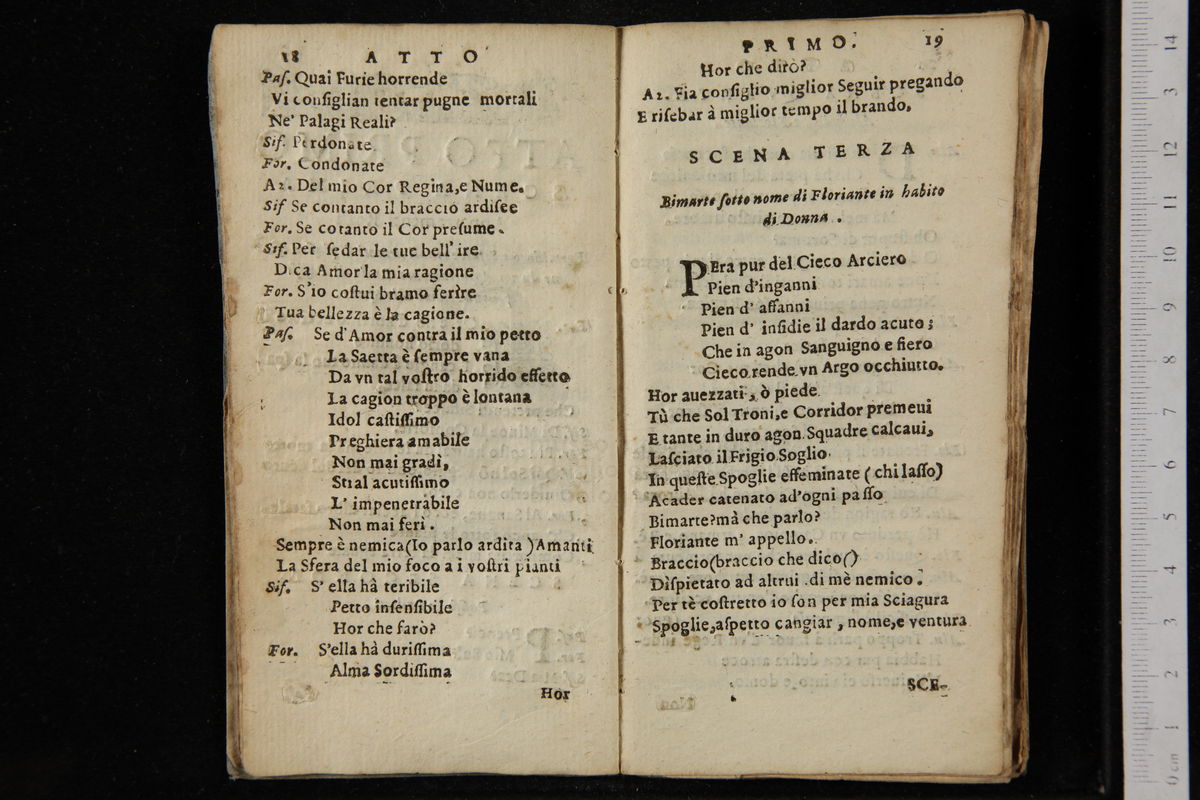 18 ATTO
Pas. Quai Furie horrende
Vi consiglian tentar pugne mortali
Ne' Palagi Reali?
Sif. Perdonate
For. Condonate
A2. Del mio Cor Regina,e Nume.
Sif Se contanto il braccio ardisee
For. Se cotanto il Cor presume.
Sif. Per sedar le tue bell' ire
Dica Amor la mia ragione
For. S'io costui bramo ferire
Tua bellezza è la cagione.
Pas. Se d'Amor contra il mio petto
La Saetta è sempre vana
Da vn tal vostro horrido effetto
La cagion troppo è lontana
Idol castissimo
Preghiera amabile
Non mai gradì,
Stial acutissimo
L' impenetrabile
Non mai feri.
Sempre è nemica(Io parlo ardita )Amanti
La Sfera del mio foco a i vostri pianti
Sif. S' ella hà teribile
Petto insensibile
Hor che farò?
For. S'ella hà durissima
Alma Sordissima
Hor
PRIMO. 19
Hor che dirò?
A2. Fia consiglio miglior Seguir pregando
E risebar à miglior tempo il brando.
SCENA TERZA
Bimarte sotto nome di Floriante in habito
di Donna .
PEra pur del Cieco Arciero
Pien d'inganni
Pien d' affanni
Pien d' insidie il dardo acuto;
Che in agon Sanguigno e fiero
Cieco rende vn Argo occhiutto.
Hor auezzati, ò piede
Tù che Sol Troni,e Corridor premeui
E tante in duro agon Squadre calcaui,
Lasciato il Frigio Soglio
In queste Spoglie effeminate ( chi lasso)
Acader catenato ad'ogni passo
Bimarte?mà che parlo?
Floriante m' appello.
Braccio(braccio che dico()
Dispietato ad altrui .di mè nemico.
Per tè costretto io son per mia Sciagura
Spoglie,aspetto cangiar , nome,e ventura
SCE-
14
13
12
11
10
9
8
7
6
5
4
3
2
1
0 cm